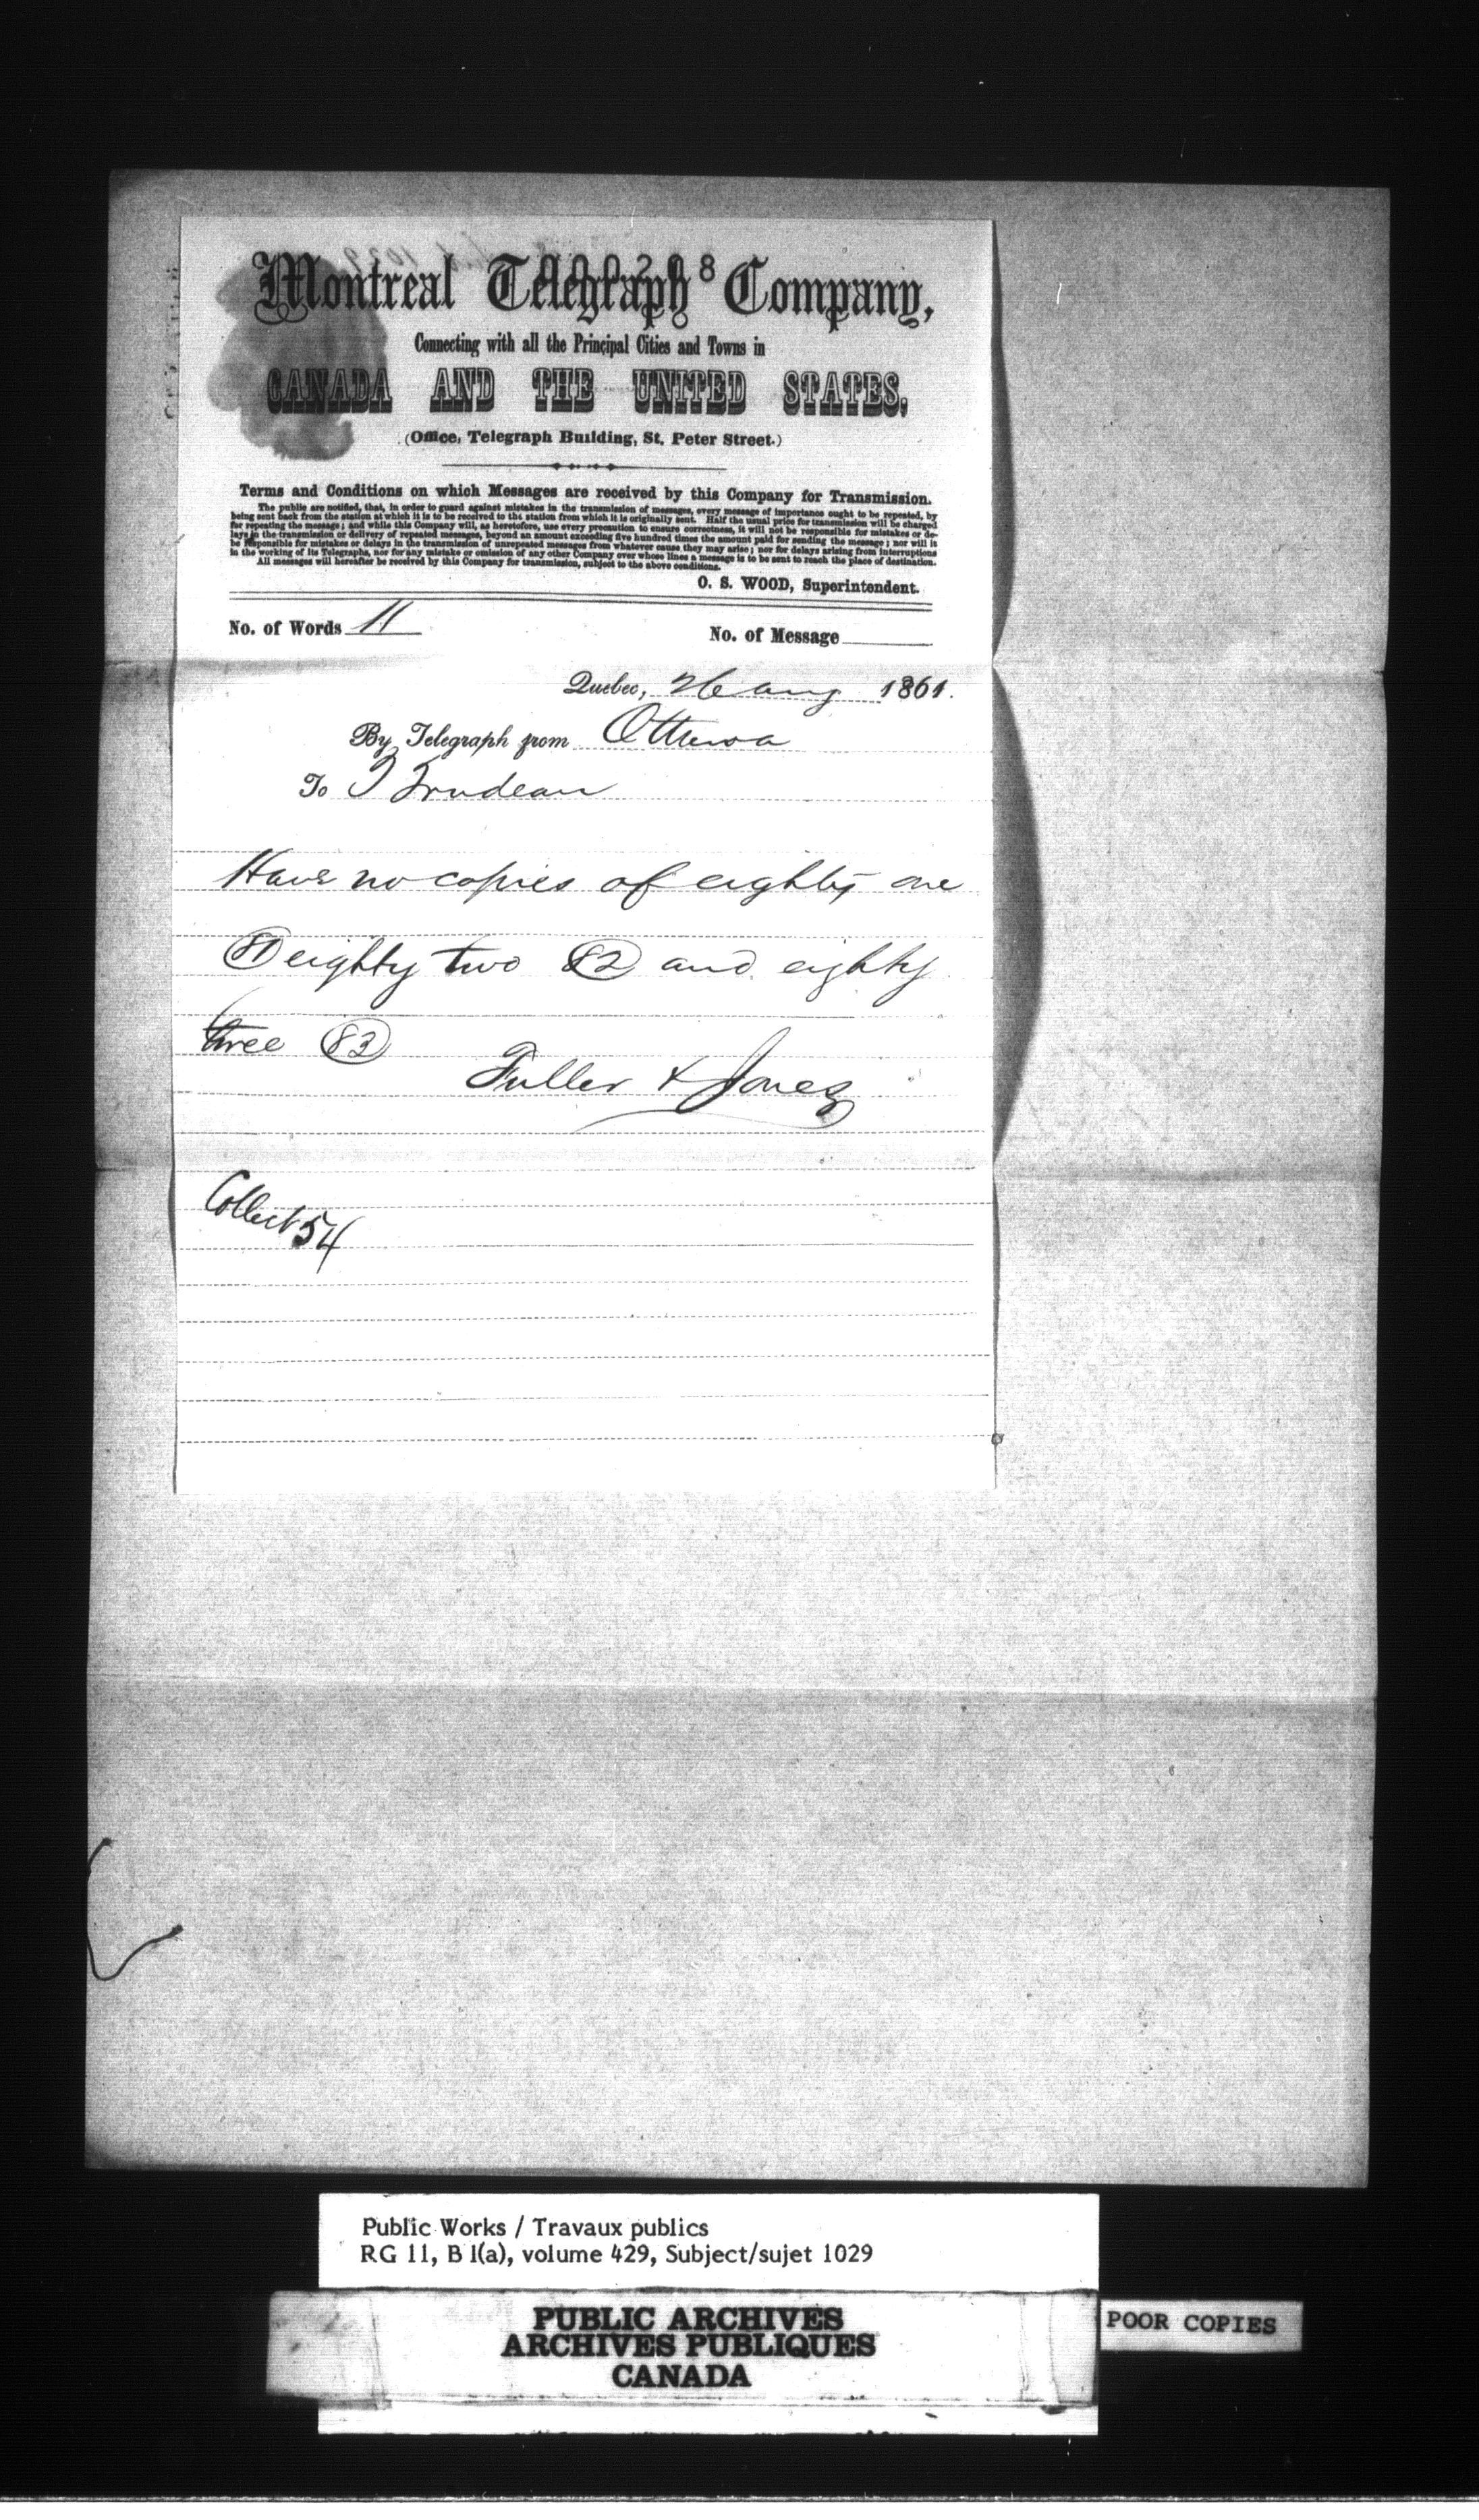 000208
Montreal Telegraph Company,
Connecting with all the Principal Cities and Towns in
CANADA AND THE UNITED STATES.
(Office, Telegraph Building, St. Peter Street.)
Terms and Conditions on which Messages are received by this Company for Transmission.
The public are notified, that, in order to guard against mistakes in the transmission of messages, every message of importance ought to be repeated, by
being sent back from the station at which it is to be received to the station from which it is originally sent. Half the usual price for transmission will be charged
for repeating the message; and while this Company will, as heretofore, use every precaution to ensure correctness, it will not be responsible for mistakes or de-
lays in the transmission or delivery of repeated messages, beyond an amount exceeding five hundred times the amount paid for sending the message; nor will it
be responsible for mistakes or delays in the transmission of unrepeated messages from whatever cause they may arise; nor for delays arising from interruptions
in the working of its Telegraphs, nor for any mistake or omission of any other Company over whose lines a message is to be sent to reach the place of destination.
All messages will hereafter be received by this Company for transmission, subject to the above conditions.
O. S. WOOD, Superintendent.
No. of Words 11 No. of Message
Quebec, 26 aug 1861.
By Telegraph from Ottawa
To T Trudeau
Have no copies of eighty one
81 eighty two 82 and eighty
three 83
Fuller & Jones
Collect 54
Public Works / Travaux publics
RG 11, B 1(a), volume 429, Subject/sujet 1029
PUBLIC ARCHIVES
ARCHIVES PUBLIQUES
CANADA
POOR COPIES